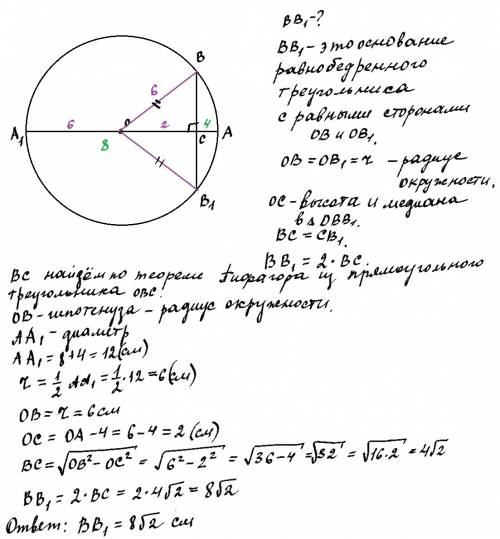 BB₁-?
BB₁ - это основание
равнобедренного
треугольника
с равными сторонами
OB и OB₁.
OB = OB₁ = r - радиус
окружности.
OC - высота и медиана
в Δ OBB₁.
BC = CB₁.
BB₁ = 2 · BC.
B
6
A₁
6
O
2
4
A
8
C
B₁
BC найдём по теореме Пифагора из прямоугольного
треугольника OBC.
OB - гипотенуза - радиус окружности.
AA₁ - диаметр
AA₁ = 8 + 4 = 12 (см)
r = 1/2 AA₁ = 1/2 · 12 = 6 (см)
OB = r = 6 см
OC = OA - 4 = 6 - 4 = 2 (см)
BC = √(OB² - OC²) = √(6² - 2²) = √(36 - 4) = √32 = √(16 · 2) = 4√2
BB₁ = 2 · BC = 2 · 4√2 = 8√2
Ответ: BB₁ = 8√2 см